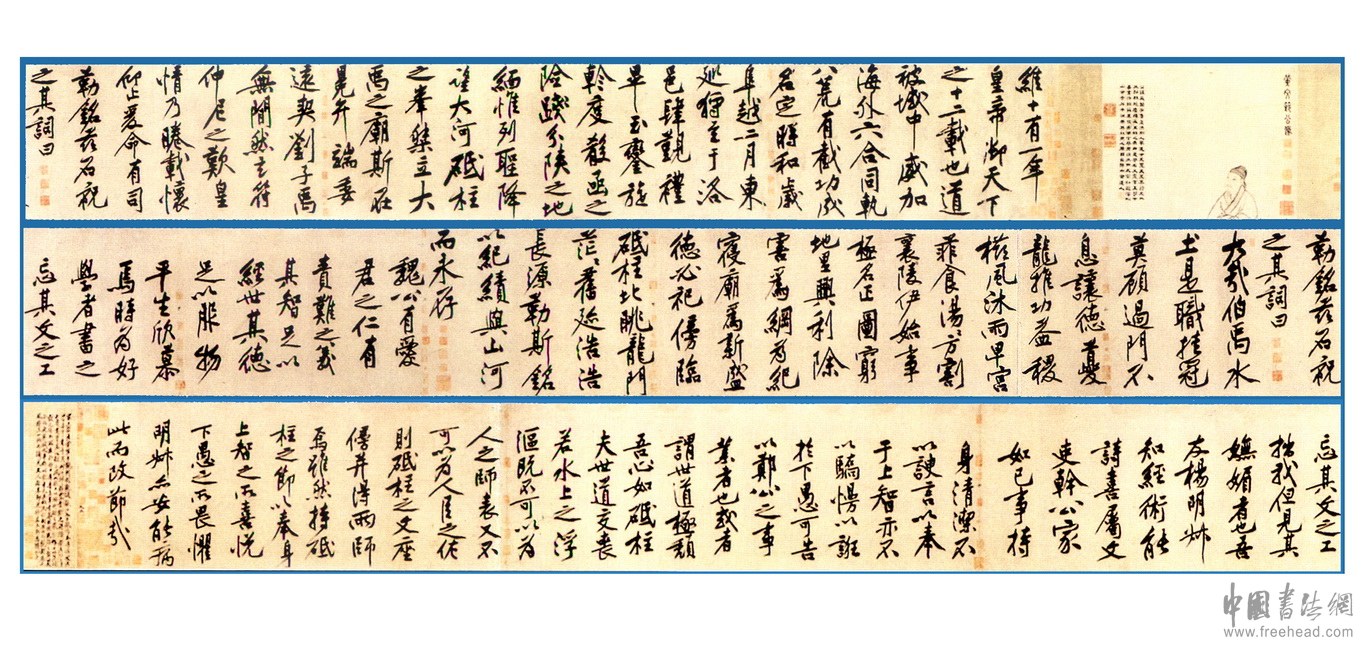 黃文節公像
維十有一年
皇帝御天下
之十二載也道
被域中威加
海外六合同軌
八荒有截功成
名定時和歲
阜越二月東
巡狩主于洛
邑肆覲禮
畢玉鑾旋
軫度殽函之
險踐分陝之地
緬惟列聖降
望大河砥柱
之峯桀立大
禹之廟斯在
冕弁端委
遠契劉子禹
無間然主符
仲尼之歎皇
情乃睠載懷
仰止爰命有司
勒銘茲石祝
之其詞曰
勒銘茲石祝
之其詞曰
大哉伯禹水
土是職挂冠
莫顧過門不
息讓德夔
龍推功益稷
櫛風沐雨卑宮
菲食湯湯方割
襄陵伊始事
極名正圖窮
地里興利除
害爲綱爲紀
寢廟爲新盛
德必祀傍臨
砥柱北眺龍門
茫茫舊跡浩浩
長源勒斯銘
以紀績與山河
而永存
魏公有愛
君之仁有
責難之義
其智足以
經世其德
足以服物
平生欣慕
焉時爲好
學者書之
忘其文之工
忘其文之工
拙我但見其
嫵媚者也吾
友楊明叔
知經術能
詩喜屬文
吏幹公家
如己事持
身清潔不
以諛言以奉
于上智亦不
以驕慢以誑
於下愚可告
以鄭公之事
業者也或者
謂世道極頹
吾心如砥柱
夫世道交喪
若水上之浮
漚既不可以爲
人之師表又不
可以爲人臣之佐
則砥柱之文座
傍并得兩師
焉雖然持砥
柱之節以奉身
上智之所喜悅
下愚之所畏懼
明叔亦安能病
此而改節哉
中國書法網
www.freehead.com